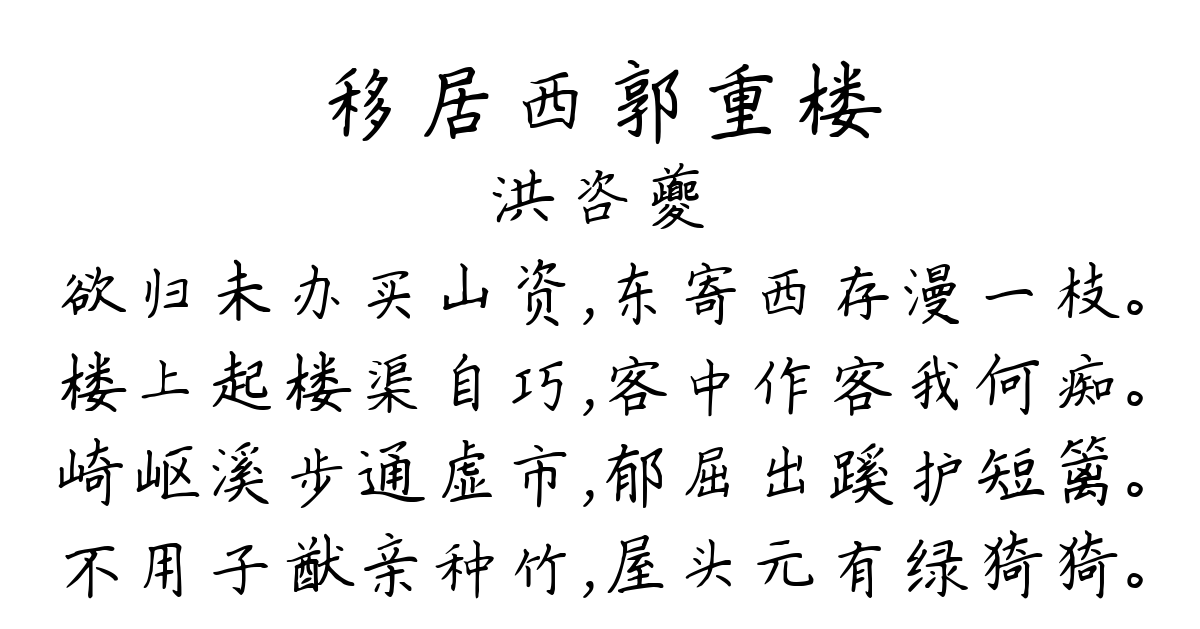 移居西郭重楼
洪咨夔
欲归未办买山资,东寄西存漫一枝。
楼上起楼渠自巧,客中作客我何痴。
崎岖溪步通虚市,郁屈出蹊护短篱。
不用子猷亲种竹,屋头元有绿猗猗。